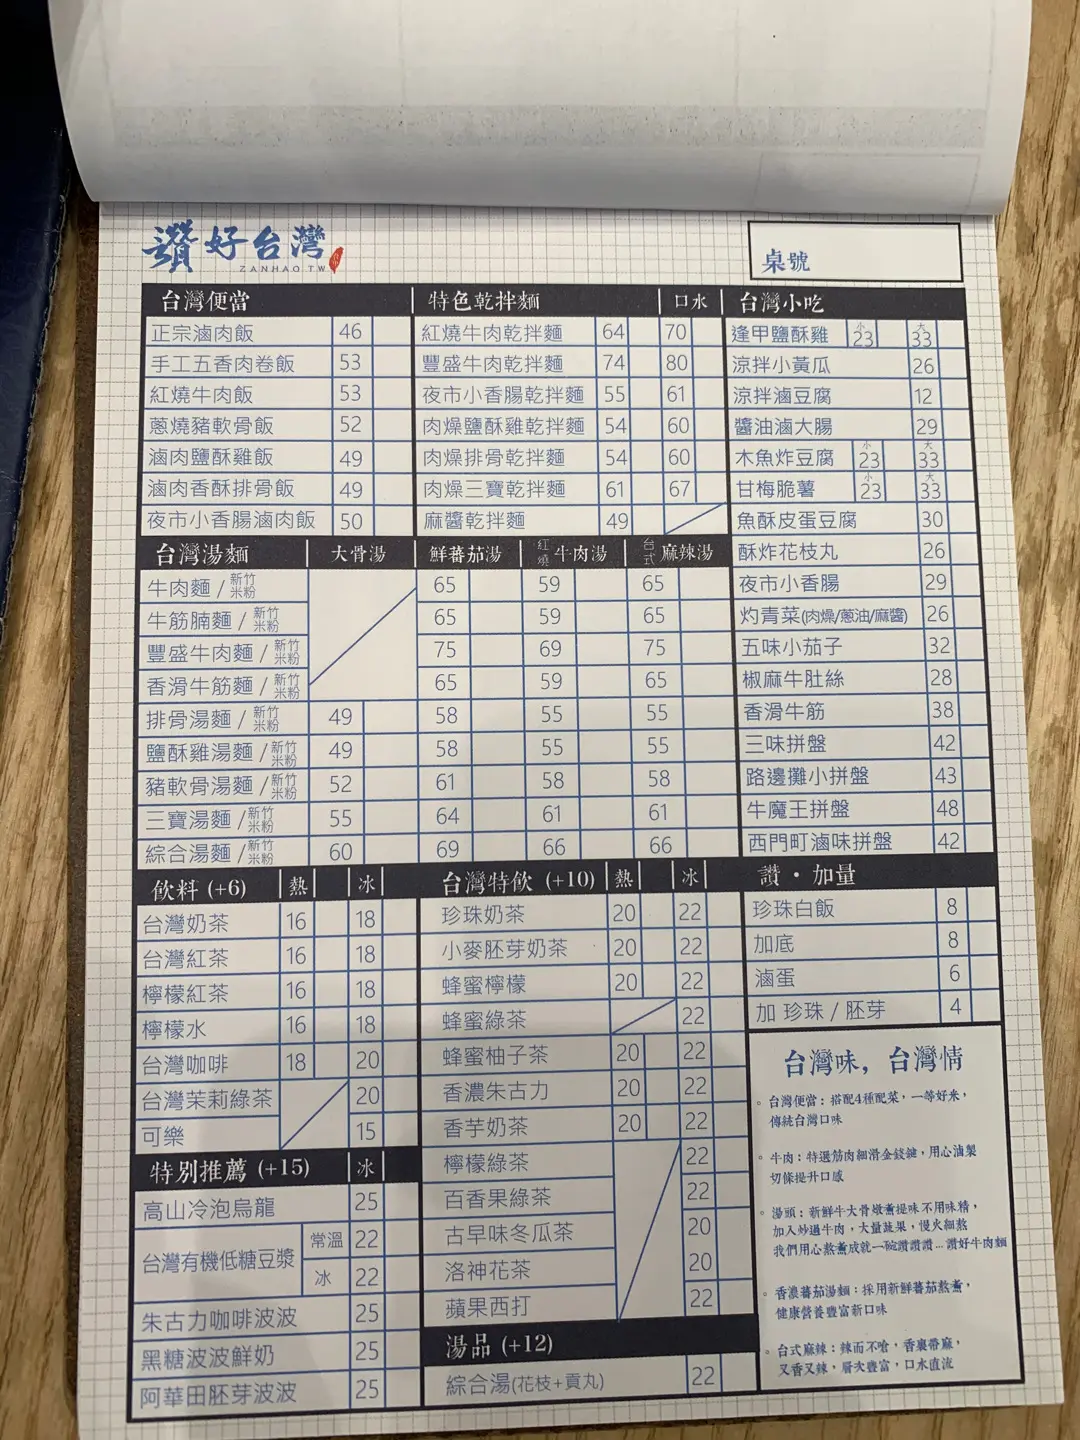 讚好台灣
ZANHAO TW
桌號
台灣便當
正宗滷肉飯 46
手工五香肉卷飯 53
紅燒牛肉飯 53
蔥燒豬軟骨飯 52
滷肉鹽酥雞飯 49
滷肉香酥排骨飯 49
夜市小香腸滷肉飯 50
特色乾拌麵 口水
紅燒牛肉乾拌麵 64 70
豐盛牛肉乾拌麵 74 80
夜市小香腸乾拌麵 55 61
肉燥鹽酥雞乾拌麵 54 60
肉燥排骨乾拌麵 54 60
肉燥三寶乾拌麵 61 67
麻醬乾拌麵 49
台灣小吃
逢甲鹽酥雞 小23 大33
涼拌小黃瓜 26
涼拌滷豆腐 12
醬油滷大腸 29
木魚炸豆腐 小23 大33
甘梅脆薯 小23 大33
魚酥皮蛋豆腐 30
酥炸花枝丸 26
夜市小香腸 29
灼青菜(肉燥/蔥油/麻醬) 26
五味小茄子 32
椒麻牛肚絲 28
香滑牛筋 38
三味拼盤 42
路邊攤小拼盤 43
牛魔王拼盤 48
西門町滷味拼盤 42
台灣湯麵 大骨湯 鮮蕃茄湯 紅燒牛肉湯 台式麻辣湯
牛肉麵/新竹米粉 65 59 65
牛筋腩麵/新竹米粉 65 59 65
豐盛牛肉麵/新竹米粉 75 69 75
香滑牛筋麵/新竹米粉 65 59 65
排骨湯麵/新竹米粉 49 58 55 55
鹽酥雞湯麵/新竹米粉 49 58 55 55
豬軟骨湯麵/新竹米粉 52 61 58 58
三寶湯麵/新竹米粉 55 64 61 61
綜合湯麵/新竹米粉 60 69 66 66
飲料 (+6) 熱 冰
台灣奶茶 16 18
台灣紅茶 16 18
檸檬紅茶 16 18
檸檬水 16 18
台灣咖啡 18 20
台灣茉莉綠茶 20
可樂 15
特別推薦 (+15) 冰
高山冷泡烏龍 25
台灣有機低糖豆漿 常溫 22
冰 22
朱古力咖啡波波 25
黑糖波波鮮奶 25
阿華田胚芽波波 25
台灣特飲 (+10) 熱 冰
珍珠奶茶 20 22
小麥胚芽奶茶 20 22
蜂蜜檸檬 20 22
蜂蜜綠茶 22
蜂蜜柚子茶 20 22
香濃朱古力 20 22
香芋奶茶 20 22
檸檬綠茶 22
百香果綠茶 22
古早味冬瓜茶 20
洛神花茶 20
蘋果西打 22
湯品 (+12)
綜合湯(花枝+貢丸) 22
讚・加量
珍珠白飯 8
加底 8
滷蛋 6
加 珍珠 / 胚芽 4
台灣味，台灣情
。台灣便當：搭配4種配菜，一等好米，
傳統台灣口味
。牛肉：特選筋肉細滑金錢鍵，用心滷製
切條提升口感
。湯頭：新鮮牛大骨燉熬提味不用味精，
加入炒過牛肉，大量蔬果，慢火細熬
我們用心熬煮成就一碗讚讚讚...讚好牛肉麵
。香濃蕃茄湯麵：採用新鮮蕃茄熬煮，
健康營養豐富新口味
。台式麻辣：辣而不嗆，香裏帶麻，
又香又辣，層次豐富，口水直流